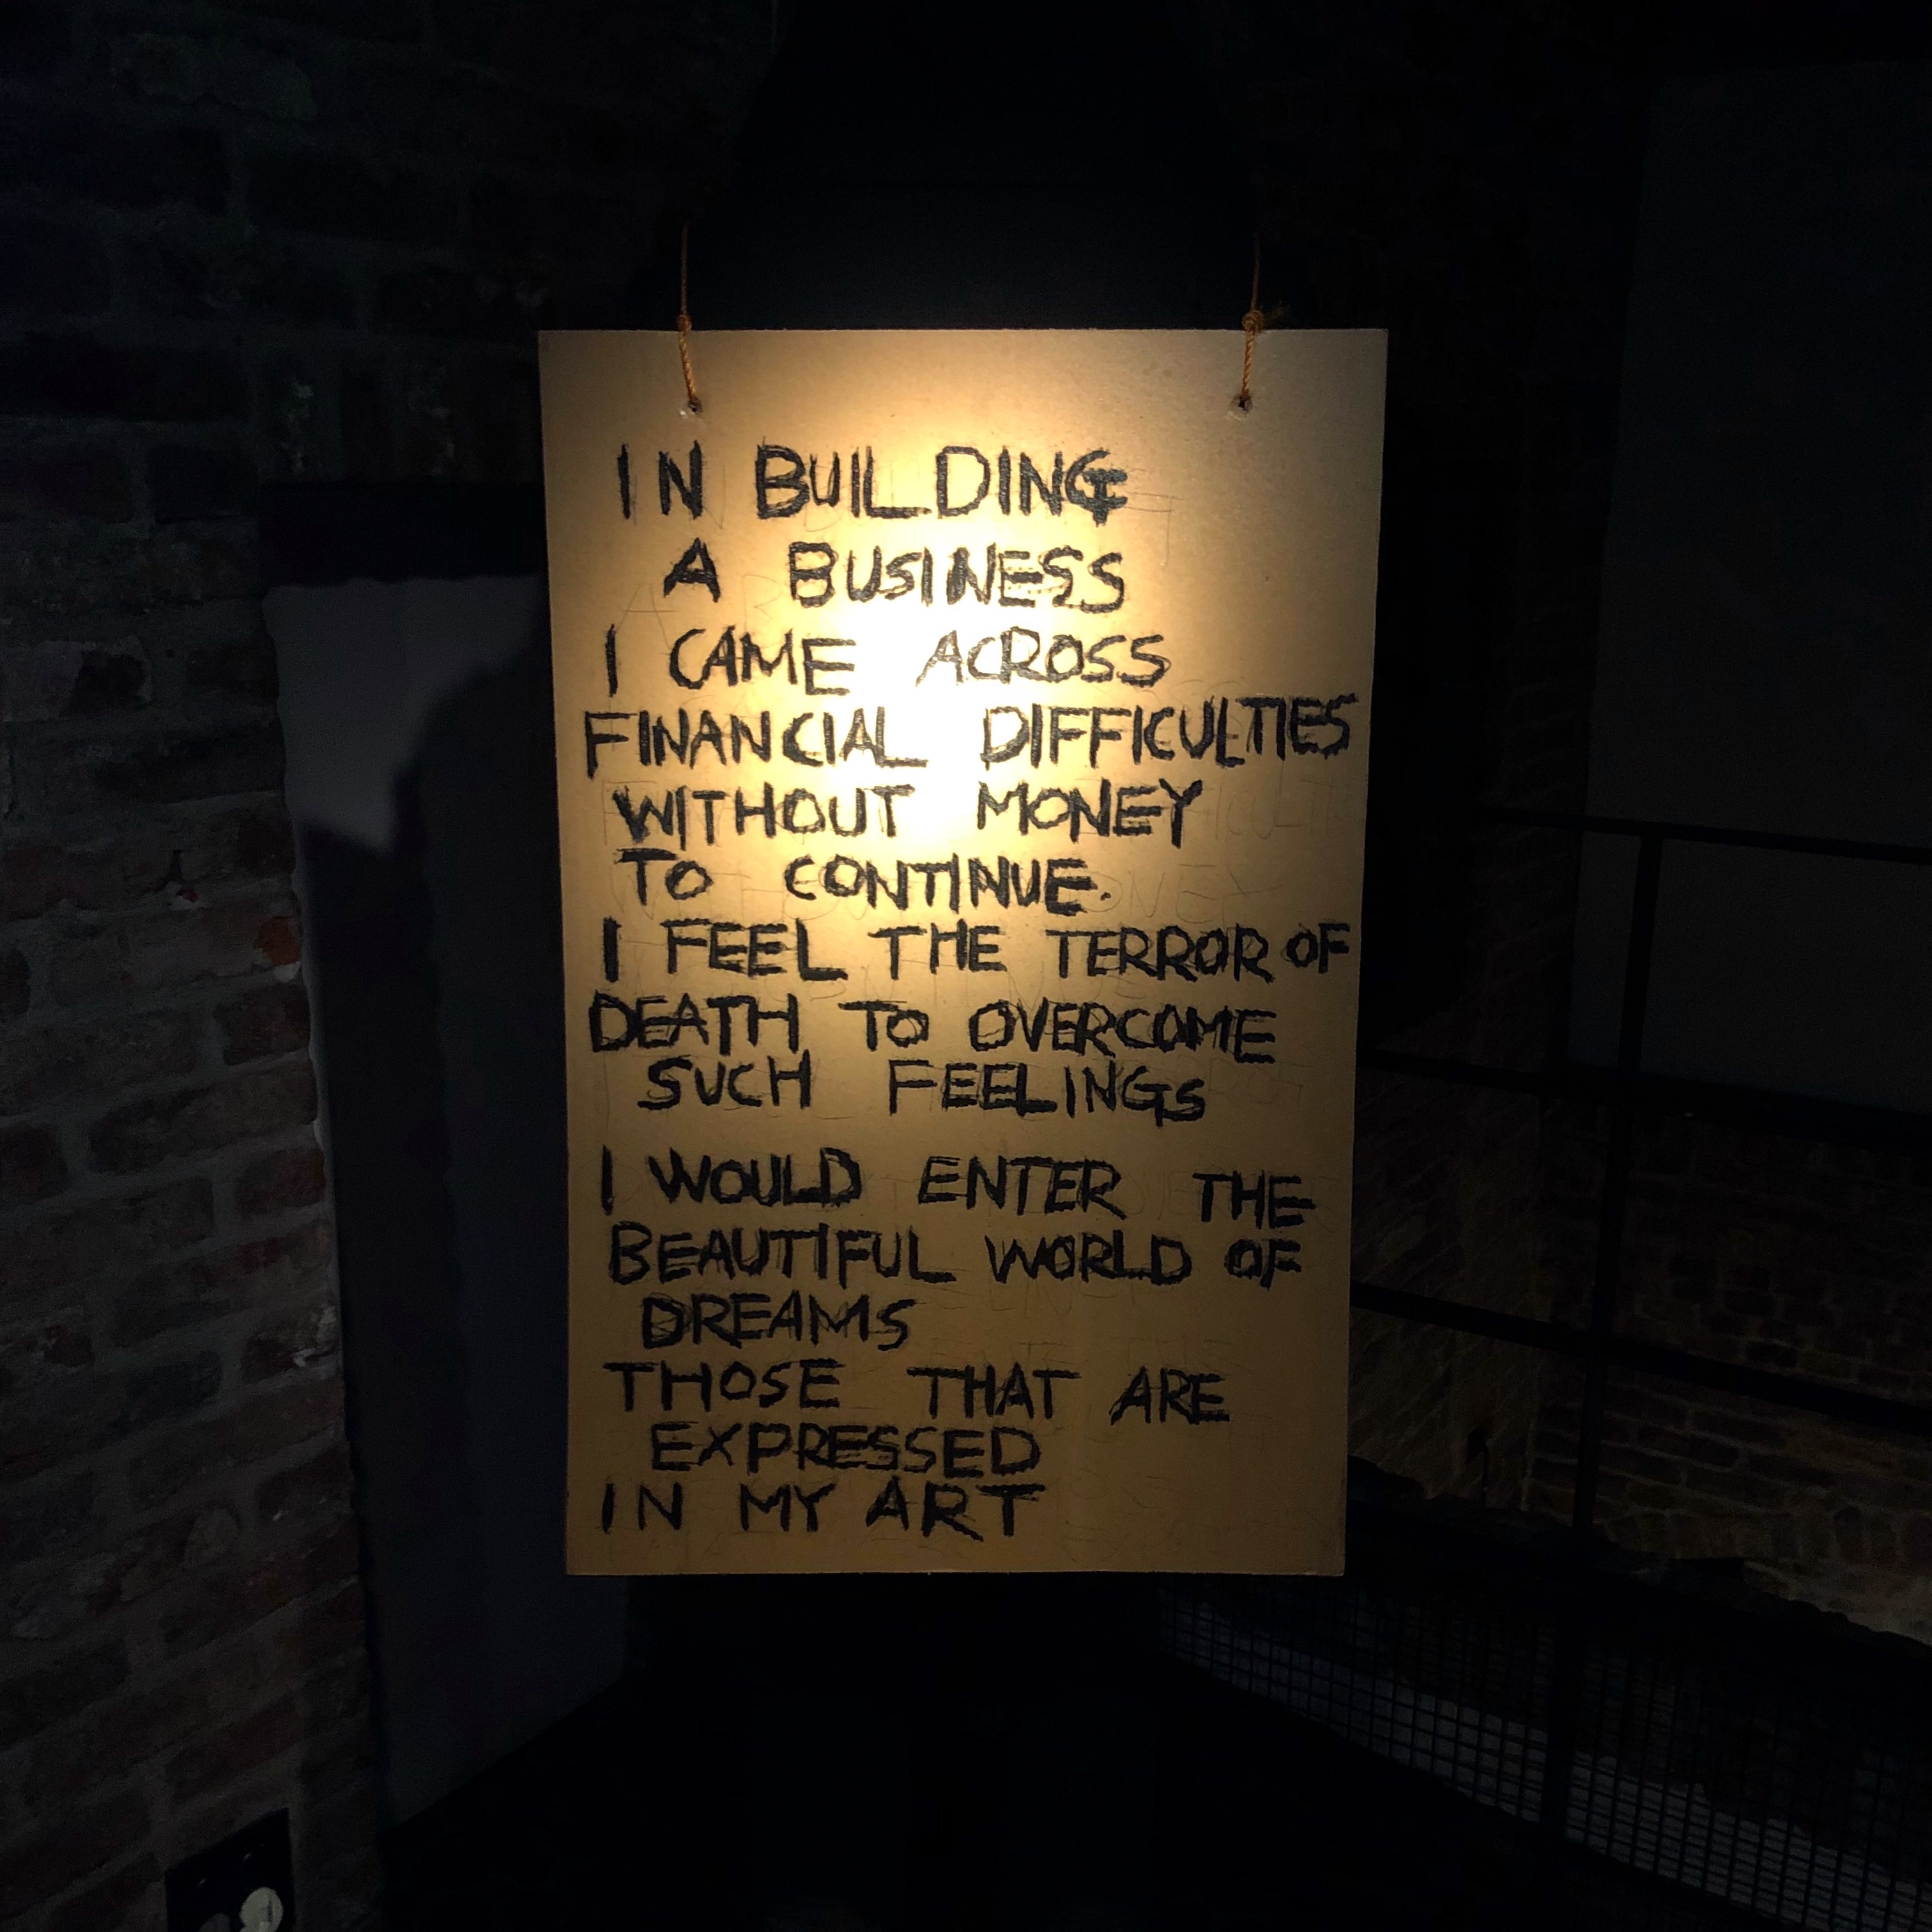 IN BUILDING
A BUSINESS
I CAME ACROSS
FINANCIAL DIFFICULTIES
WITHOUT MONEY
TO CONTINUE.
I FEEL THE TERROR OF
DEATH TO OVERCOME
SUCH FEELINGS
I WOULD ENTER THE
BEAUTIFUL WORLD OF
DREAMS
THOSE THAT ARE
EXPRESSED
IN MY ART